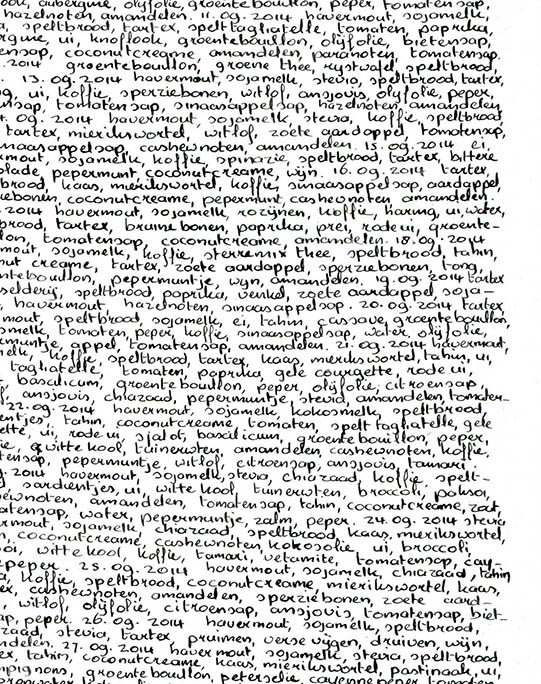 ook, aubergine, olijfolie, groentebouillon, peper, tomatensap,
hazelnoten, amandelen. 11.09.2014 havermout, sojamelk,
a, speltbrood, tartex, spelttagliatelle, tomaten, paprika,
rgine, ui, knoflook, groentebouillon, olijfolie, bietensap,
ensap, coconutcreame, amandelen, paranoten, tomatensap.
.2014 groentebouillon, groene thee, rijstwafel, speltbrood,
. 13.09.2014 havermout, sojamelk, stevia, speltbrood, tartex,
g, ui, koffie, sperziebonen, witlof, ansjovis, olijfolie, peper,
nsap, tomatensap, sinaasappelsap, hazelnoten, amandelen
4.09.2014 havermout, sojamelk, stevia, koffie, speltbrood,
tartex, mierikswortel, witlof, zoete aardappel, tomatensap,
naasappelsap, cashewnoten, amandelen. 15.09.2014 ei,
mout, sojamelk, koffie, spinazie, speltbrood, tartex, bittere
olade, pepermunt, coconutcreame, wijn. 16.09.2014 tartex,
brood, kaas, mierikswortel, koffie, sinaasappelsap, aardappel,
iebonen, coconutcreame, pepermunt, cashewnoten, amandelen.
.2014 havermout, sojamelk, rozijnen, koffie, haring, ui, water,
brood, tartex, bruine bonen, paprika, prei, rode ui, groente-
lon, tomatensap, coconutcreame, amandelen. 18.09.2014
mout, sojamelk, koffie, sterremix thee, speltbrood, tahin,
nut creame, tartex, zoete aardappel, sperziebonen, tong,
ntebouillon, pepermuntje, wijn, amandelen. 19.09.2014 tartex
selderij, speltbrood, paprika, venkel, zoete aardappel, soja-
, havermout, hazelnoten, sinaasappelsap. 20.09.2014 tartex,
mout, speltbrood, sojamelk, ei, tahin, cassave, groentebouillon,
smelk, tomaten, peper, koffie, sinaasappelsap, water, olijfolie,
rmuntje, appel, tomatensap, amandelen. 21.09.2014 havermout,
melk, koffie, speltbrood, tartex, kaas, mierikswortel, tahin, ui,
tagliatelle, tomaten, paprika, gele courgette, rode ui,
basilicum, groentebouillon, peper, olijfolie, citroensap,
f, ansjovis, chiazaad, pepermuntje, stevia, amandelen, tomaten-
. 22.09.2014 havermout, sojamelk, kokosmelk, speltbrood,
entjes, tahin, coconutcreame, tomaten, spelt tagliatelle, gele
ette, ui, rode ui, sjalot, basilicum, groentebouillon, peper,
ie, witte kool, tuinerwten, amandelen, cashewnoten, koffie,
tensap, pepermuntje, witlof, citroensap, ansjovis, tamari.
.2014 havermout, sojamelk, stevia, chiazaad, koffie, spelt-
, sardientjes, ui, witte kool, tuinerwten, broccoli, paksoi,
ewnoten, amandelen, tomatensap, tahin, coconutcreame, zout,
atensap, water, pepermuntje, zalm, peper. 24.09.2014 stevia
rmout, sojamelk, chiazaad, speltbrood, kaas, mierikswortel,
n, coconutcreame, cashewnoten, kokosolie, ui, broccoli,
oi, witte kool, koffie, tamari, vetamite, tomatensap, cay-
epeper. 25.09.2014 havermout, sojamelk, chiazaad, tahin
a, koffie, speltbrood, coconutcreame, mierikswortel, kaas,
ex, cashewnoten, amandelen, sperziebonen, zoete aard-
, witlof, olijfolie, citroensap, ansjovis, tomatensap, biet-
ap, peper. 26.09.2014 havermout, sojamelk, speltbrood,
zaad, stevia, tartex, pruimen, verse vijgen, druiven, wijn,
ndelen. 27.09.2014 havermout, sojamelk, stevia, speltbrood,
ex, tahin, coconutcreame, kaas, mierikswortel, pastinaak, ui,
mpignons, groentebouillon, peterselie, cayennepeper, tomaten